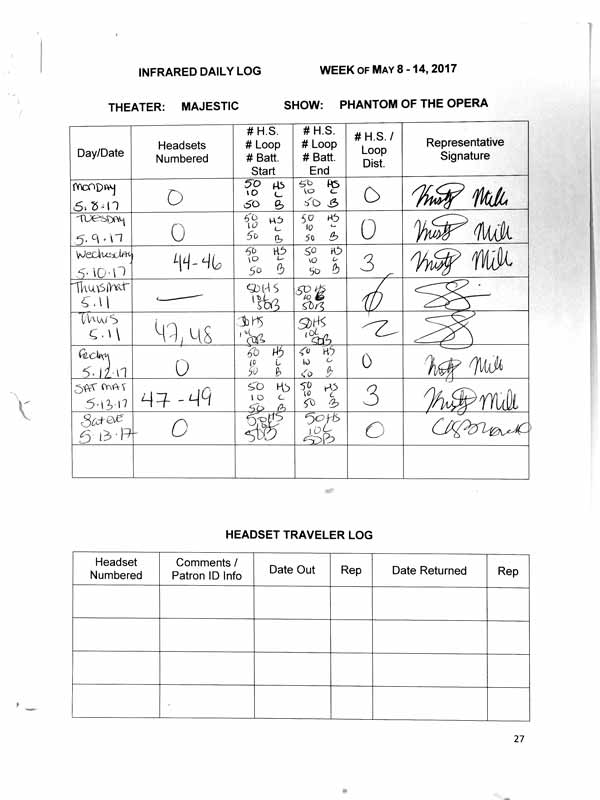 INFRARED DAILY LOG WEEK OF MAY 8 - 14, 2017
THEATER: MAJESTIC SHOW: PHANTOM OF THE OPERA
Day/Date
Headsets
Numbered
# H.S.
# Loop
# Batt.
Start
# H.S.
# Loop
# Batt.
End
# H.S. /
Loop
Dist.
Representative
Signature
MONDAY
5.8.17
0
50 HS
10 L
50 B
50 HS
10 L
50 B
0
Kristy Mills
TUESDAY
5.9.17
0
50 HS
10 L
50 B
50 HS
10 L
50 B
0
Wednesday
5.10.17
44-46
50 HS
10 L
50 B
50 HS
10 L
50 B
3
Thurs mat
5.11
—
50 HS
10L
50B
50 HS
10
50B
Thurs
5.11
47, 48
50 HS
10L
50B
50HS
10L
50B
2
Friday
5.12.17
0
50 HS
10 L
50 B
50 HS
10 L
50 B
0
SAT MAT
5.13.17
47 - 49
50 HS
10 L
50 B
50 HS
10 L
50 B
3
Sat eve
5.13.17
0
50HS
10L
50B
50HS
10L
50B
0
HEADSET TRAVELER LOG
Headset
Numbered
Comments /
Patron ID Info
Date Out
Rep
Date Returned
Rep
27